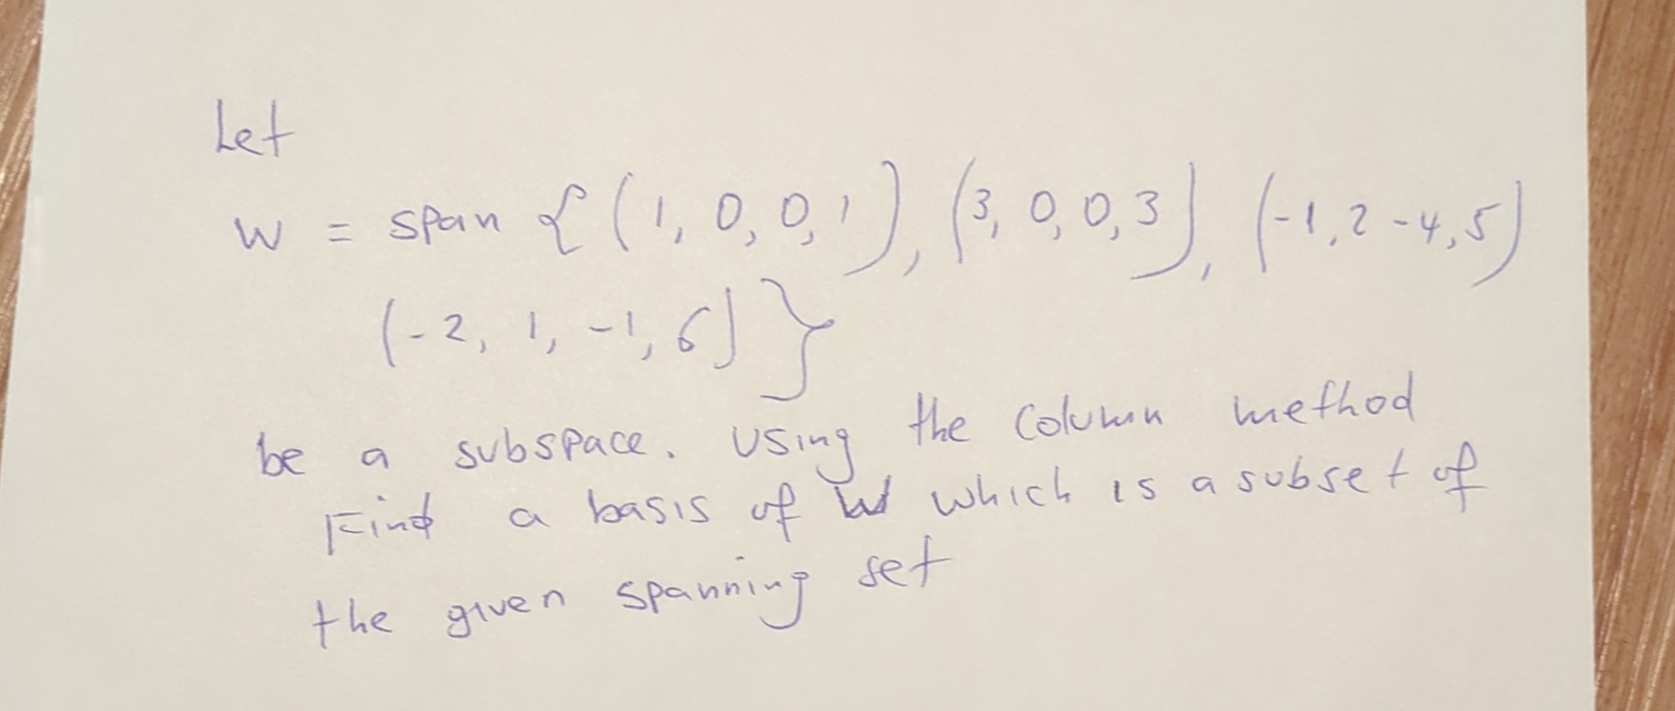 Let
W = span {(1, 0, 0, 1), (3, 0, 0, 3), (-1, 2 -4, 5)
(-2, 1, -1, 6)}
be a subspace. Using the column method
Find a basis of W which is a subset of
the given spanning set